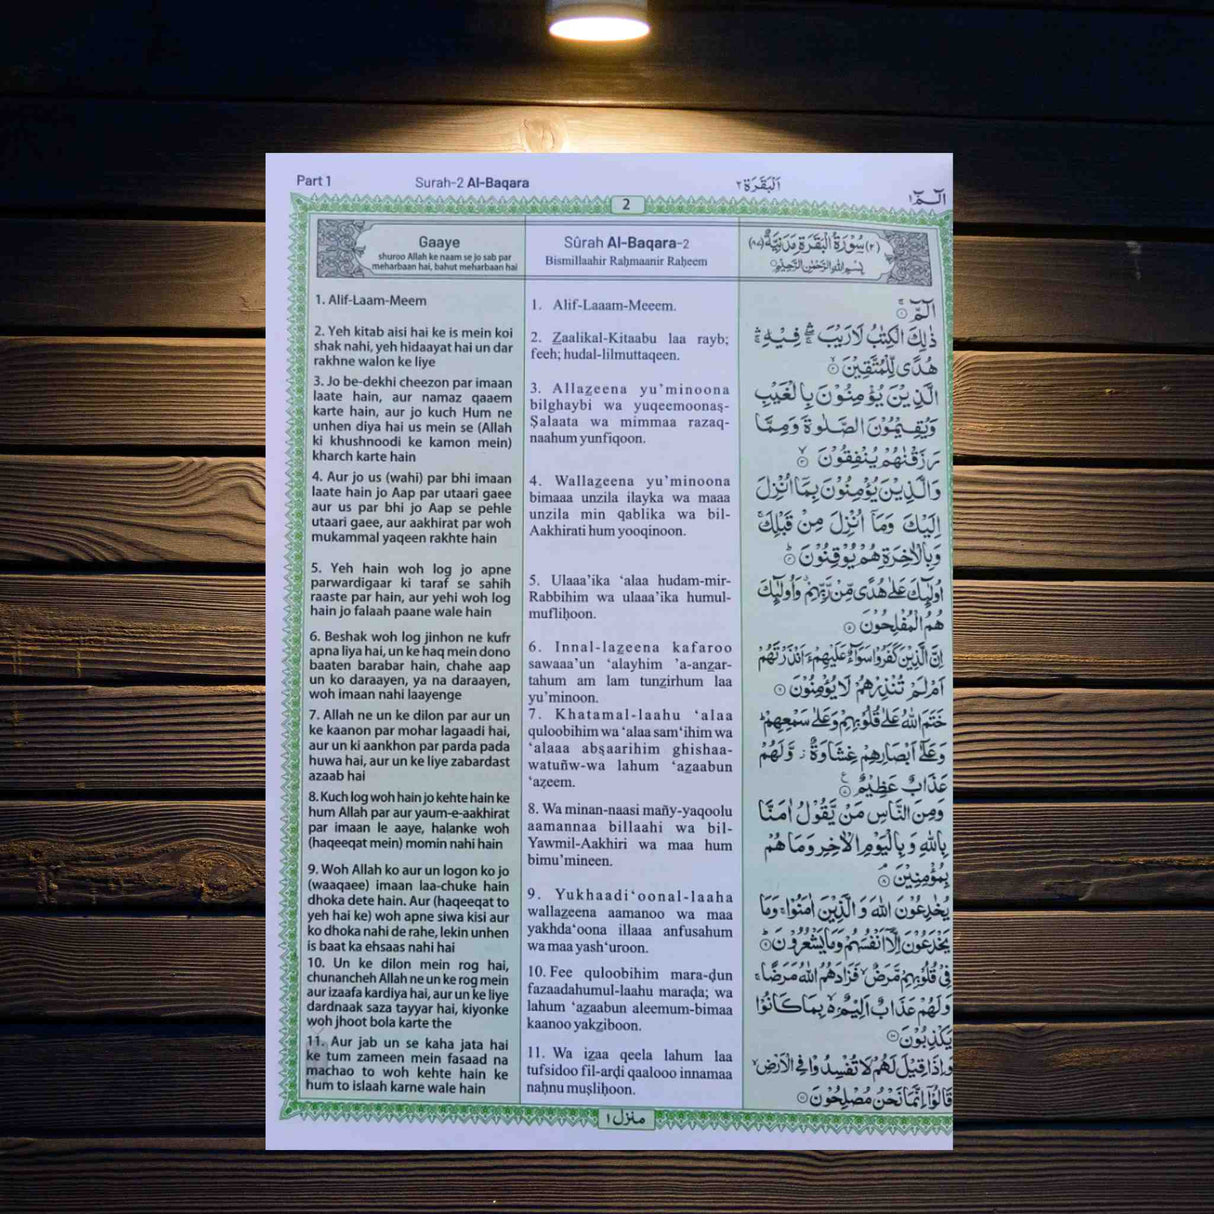 Part 1
Surah-2 Al-Baqara
اَلْبَقَرَة ٢
الٓمّٓ ١
2
Gaaye
shuroo Allah ke naam se jo sab par
meharbaan hai, bahut meharbaan hai
1. Alif-Laam-Meem
2. Yeh kitab aisi hai ke is mein koi
shak nahi, yeh hidaayat hai un dar
rakhne walon ke liye
3. Jo be-dekhi cheezon par imaan
laate hain, aur namaz qaaem
karte hain, aur jo kuch Hum ne
unhen diya hai us mein se (Allah
ki khushnoodi ke kamon mein)
kharch karte hain
4. Aur jo us (wahi) par bhi imaan
laate hain jo Aap par utaari gaee
aur us par bhi jo Aap se pehle
utaari gaee, aur aakhirat par woh
mukammal yaqeen rakhte hain
5. Yeh hain woh log jo apne
parwardigaar ki taraf se sahih
raaste par hain, aur yehi woh log
hain jo falaah paane wale hain
6. Beshak woh log jinhon ne kufr
apna liya hai, un ke haq mein dono
baaten barabar hain, chahe aap
un ko daraayen, ya na daraayen,
woh imaan nahi laayenge
7. Allah ne un ke dilon par aur un
ke kaanon par mohar lagaadi hai,
aur un ki aankhon par parda pada
huwa hai, aur un ke liye zabardast
azaab hai
8. Kuch log woh hain jo kehte hain ke
hum Allah par aur yaum-e-aakhirat
par imaan le aaye, halanke woh
(haqeeqat mein) momin nahi hain
9. Woh Allah ko aur un logon ko jo
(waaqaee) imaan laa-chuke hain
dhoka dete hain. Aur (haqeeqat to
yeh hai ke) woh apne siwa kisi aur
ko dhoka nahi de rahe, lekin unhen
is baat ka ehsaas nahi hai
10. Un ke dilon mein rog hai,
chunancheh Allah ne un ke rog mein
aur izaafa kardiya hai, aur un ke liye
dardnaak saza tayyar hai, kiyonke
woh jhoot bola karte the
11. Aur jab un se kaha jata hai
ke tum zameen mein fasaad na
machao to woh kehte hain ke
hum to islaah karne wale hain
Sûrah Al-Baqara-2
Bismillaahir Raḥmaanir Raḥeem
1. Alif-Laaam-Meeem.
2. Z̲aalikal-Kitaabu laa rayb;
feeh; hudal-lilmuttaqeen.
3. Allaz̲eena yu’minoona
bilghaybi wa yuqeemoonaṣ-
Ṣalaata wa mimmaa razaq-
naahum yunfiqoon.
4. Wallaz̲eena yu’minoona
bimaaa unzila ilayka wa maaa
unzila min qablika wa bil-
Aakhirati hum yooqinoon.
5. Ulaaa’ika ‘alaa hudam-mir-
Rabbihim wa ulaaa’ika humul-
mufliḥoon.
6. Innal-laz̲eena kafaroo
sawaaa’un ‘alayhim ’a-anz̲ar-
tahum am lam tunz̲irhum laa
yu’minoon.
7. Khatamal-laahu ‘alaa
quloobihim wa ‘alaa sam‘ihim wa
‘alaaa abṣaarihim ghishaa-
watuñw-wa lahum ‘az̲aabun
‘aẓeem.
8. Wa minan-naasi mañy-yaqoolu
aamannaa billaahi wa bil-
Yawmil-Aakhiri wa maa hum
bimu’mineen.
9. Yukhaadi‘oonal-laaha
wallaz̲eena aamanoo wa maa
yakhda‘oona illaaa anfusahum
wa maa yash‘uroon.
10. Fee quloobihim mara-ḍun
fazaadahumul-laahu maraḍa; wa
lahum ‘az̲aabun aleemum-bimaa
kaanoo yakz̲iboon.
11. Wa iz̲aa qeela lahum laa
tufsidoo fil-arḍi qaalooo innamaa
naḥnu muṣliḥoon.
(٢) سُوْرَةُ الْبَقَرَةِ مَدَنِيَّةٌ (٨٧)
بِسْمِ اللهِ الرَّحْمٰنِ الرَّحِيْمِ
الٓمّٓ ۝١
ذٰلِكَ الْكِتٰبُ لَا رَيْبَ ۛ فِيْهِ ۛ
هُدًى لِّلْمُتَّقِيْنَ ۝٢
الَّذِيْنَ يُؤْمِنُوْنَ بِالْغَيْبِ
وَيُقِيْمُوْنَ الصَّلٰوةَ وَمِمَّا
رَزَقْنٰهُمْ يُنْفِقُوْنَ ۝٣
وَالَّذِيْنَ يُؤْمِنُوْنَ بِمَآ اُنْزِلَ
اِلَيْكَ وَمَآ اُنْزِلَ مِنْ قَبْلِكَ ۚ
وَبِالْاٰخِرَةِ هُمْ يُوْقِنُوْنَ ۝٤
اُولٰٓئِكَ عَلٰى هُدًى مِّنْ رَّبِّهِمْ ۙ وَاُولٰٓئِكَ
هُمُ الْمُفْلِحُوْنَ ۝٥
اِنَّ الَّذِيْنَ كَفَرُوْا سَوَآءٌ عَلَيْهِمْ ءَاَنْذَرْتَهُمْ
اَمْ لَمْ تُنْذِرْهُمْ لَا يُؤْمِنُوْنَ ۝٦
خَتَمَ اللهُ عَلٰى قُلُوْبِهِمْ وَعَلٰى سَمْعِهِمْ ؕ
وَعَلٰٓى اَبْصَارِهِمْ غِشَاوَةٌ ؗ وَّلَهُمْ
عَذَابٌ عَظِيْمٌ ۝٧
وَمِنَ النَّاسِ مَنْ يَّقُوْلُ اٰمَنَّا
بِاللهِ وَبِالْيَوْمِ الْاٰخِرِ وَمَا هُمْ
بِمُؤْمِنِيْنَ ۝٨
يُخٰدِعُوْنَ اللهَ وَالَّذِيْنَ اٰمَنُوْا ۚ وَمَا
يَخْدَعُوْنَ اِلَّآ اَنْفُسَهُمْ وَمَا يَشْعُرُوْنَ ۝٩
فِيْ قُلُوْبِهِمْ مَّرَضٌ ۙ فَزَادَهُمُ اللهُ مَرَضًا ۚ
وَلَهُمْ عَذَابٌ اَلِيْمٌ ۢ ۙ بِمَا كَانُوْا
يَكْذِبُوْنَ ۝١٠
وَاِذَا قِيْلَ لَهُمْ لَا تُفْسِدُوْا فِي الْاَرْضِ ۙ
قَالُوْٓا اِنَّمَا نَحْنُ مُصْلِحُوْنَ ۝١١
منزل ١